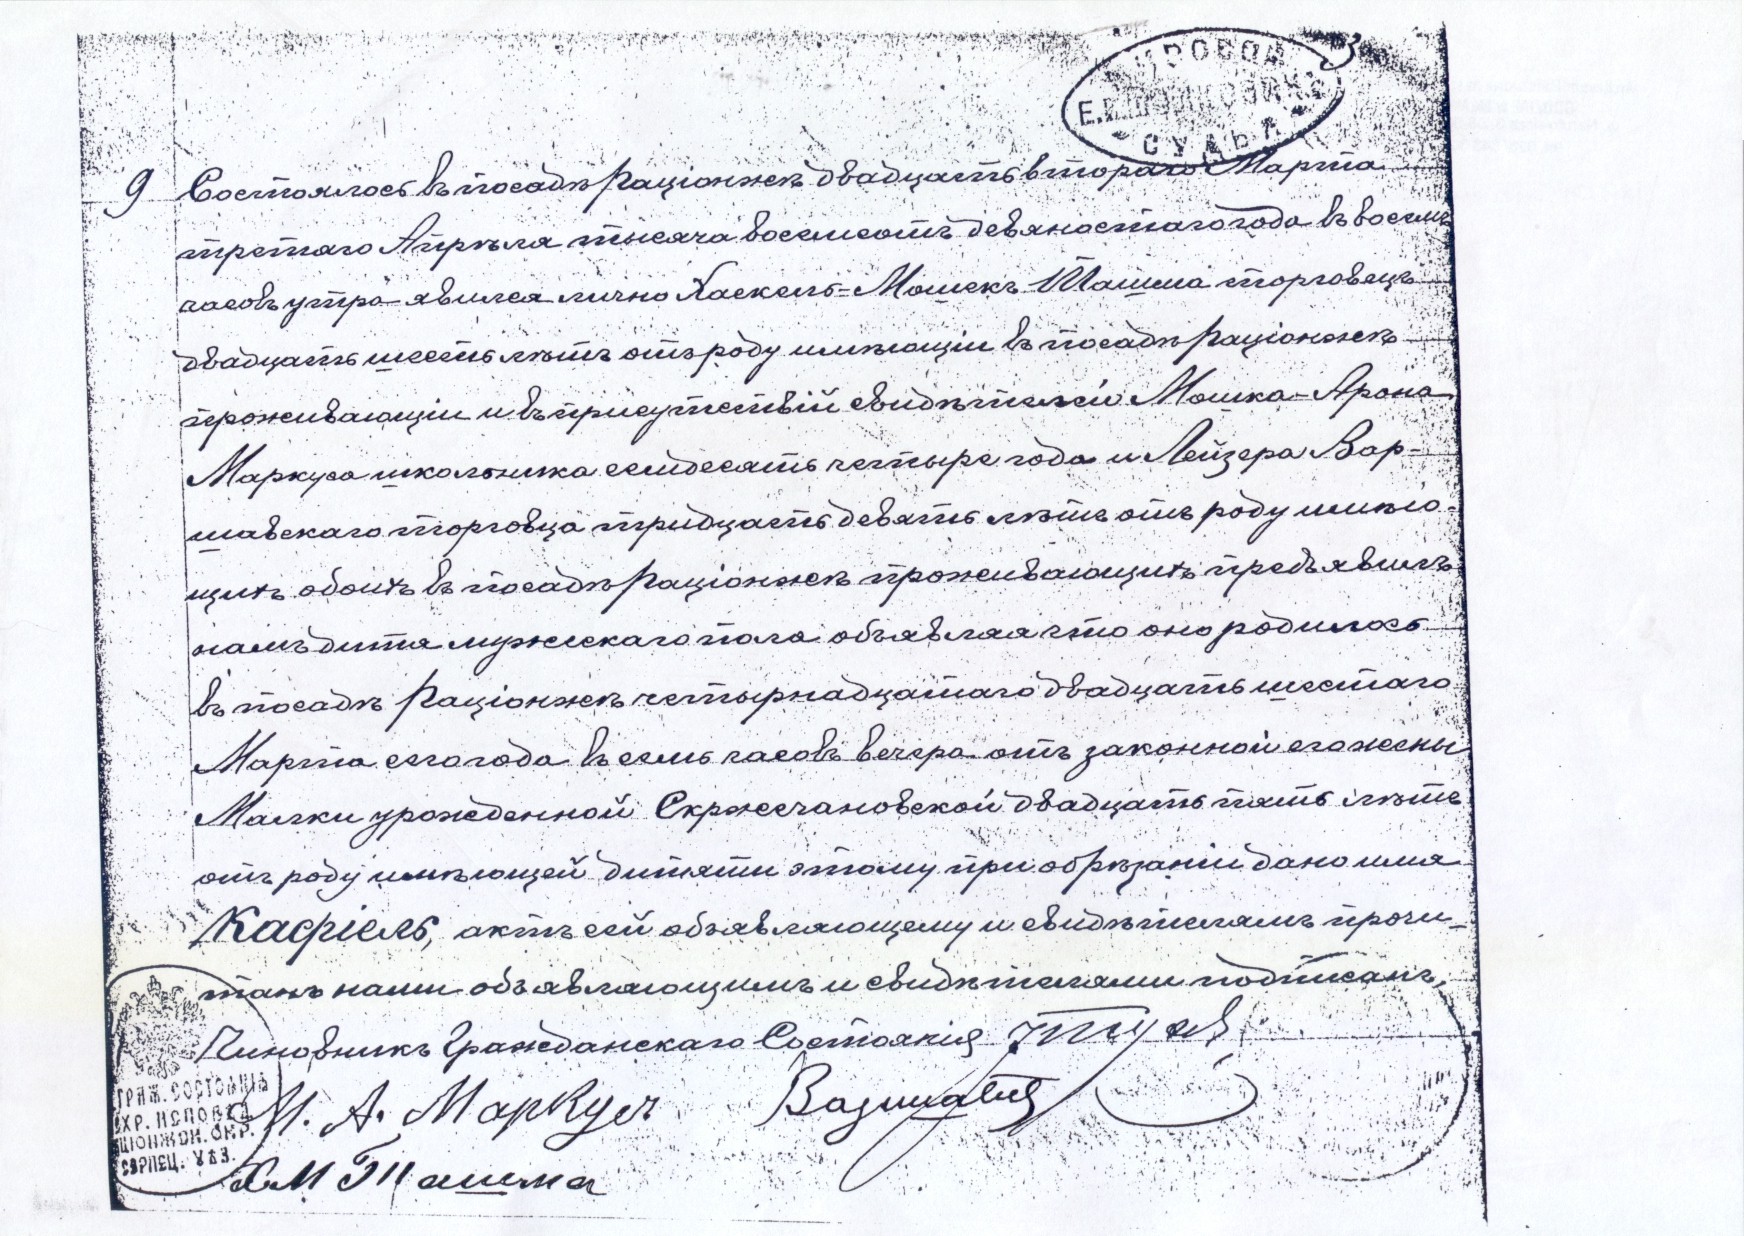 МИРОВОЙ
СУДЬЯ
9 Состоялось въ посадѣ Раціонжѣ двадцать втораго Марта
третяго Апрѣля тысяча восемсотъ девяностаго года въ восемь
часовъ утра явился лично Хаскель=Мошекъ Ташма торговецъ
двадцать шесть лѣтъ отъ роду имѣющіи въ посадѣ Раціонжѣ
проживающіи и въ присутствій свидѣтелей Мошка-Арона
Маркуса школьника семдесятъ четыре года и Лейзера Вар-
шавскаго торговца тридцать девять лѣтъ отъ роду имѣю-
щихъ обоихъ въ посадѣ Раціонжѣ проживающихъ предъявилъ
намъ дитя мужескаго пола объявляя что оно родилось
въ посадѣ Раціонжѣ четырнадцатаго двадцать шестаго
Марта сего года въ семь часовъ вечера отъ законной его жены
Малки урожденной Скржечановской двадцать пять лѣтъ
отъ роду имѣющей дитяти этому при обрѣзаніи дано имя
Касріель, актъ сей объявляющему и свидѣтелямъ прочи-
танъ нами объявляющимъ и свидѣтелями подписанъ,
Чиновникъ Гражданскаго Состоянія
М. А. Маркус
ХМ Ташма
ГРАЖ. СОСТОЯНІЯ
ХР. ИСПОВѢД
ЦІОНЖОН. ОКР.
СЕРПЕЦ. УѢЗ.